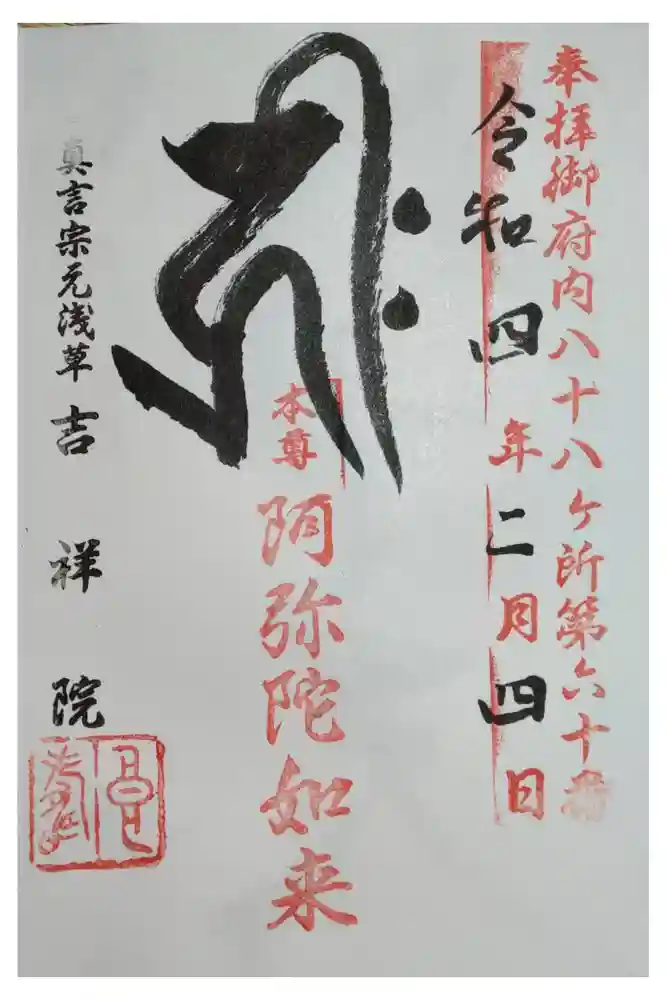 奉拝御府内八十八ケ所第六十番
令和四年二月四日
本尊
阿弥陀如来
真言宗元浅草 吉祥院